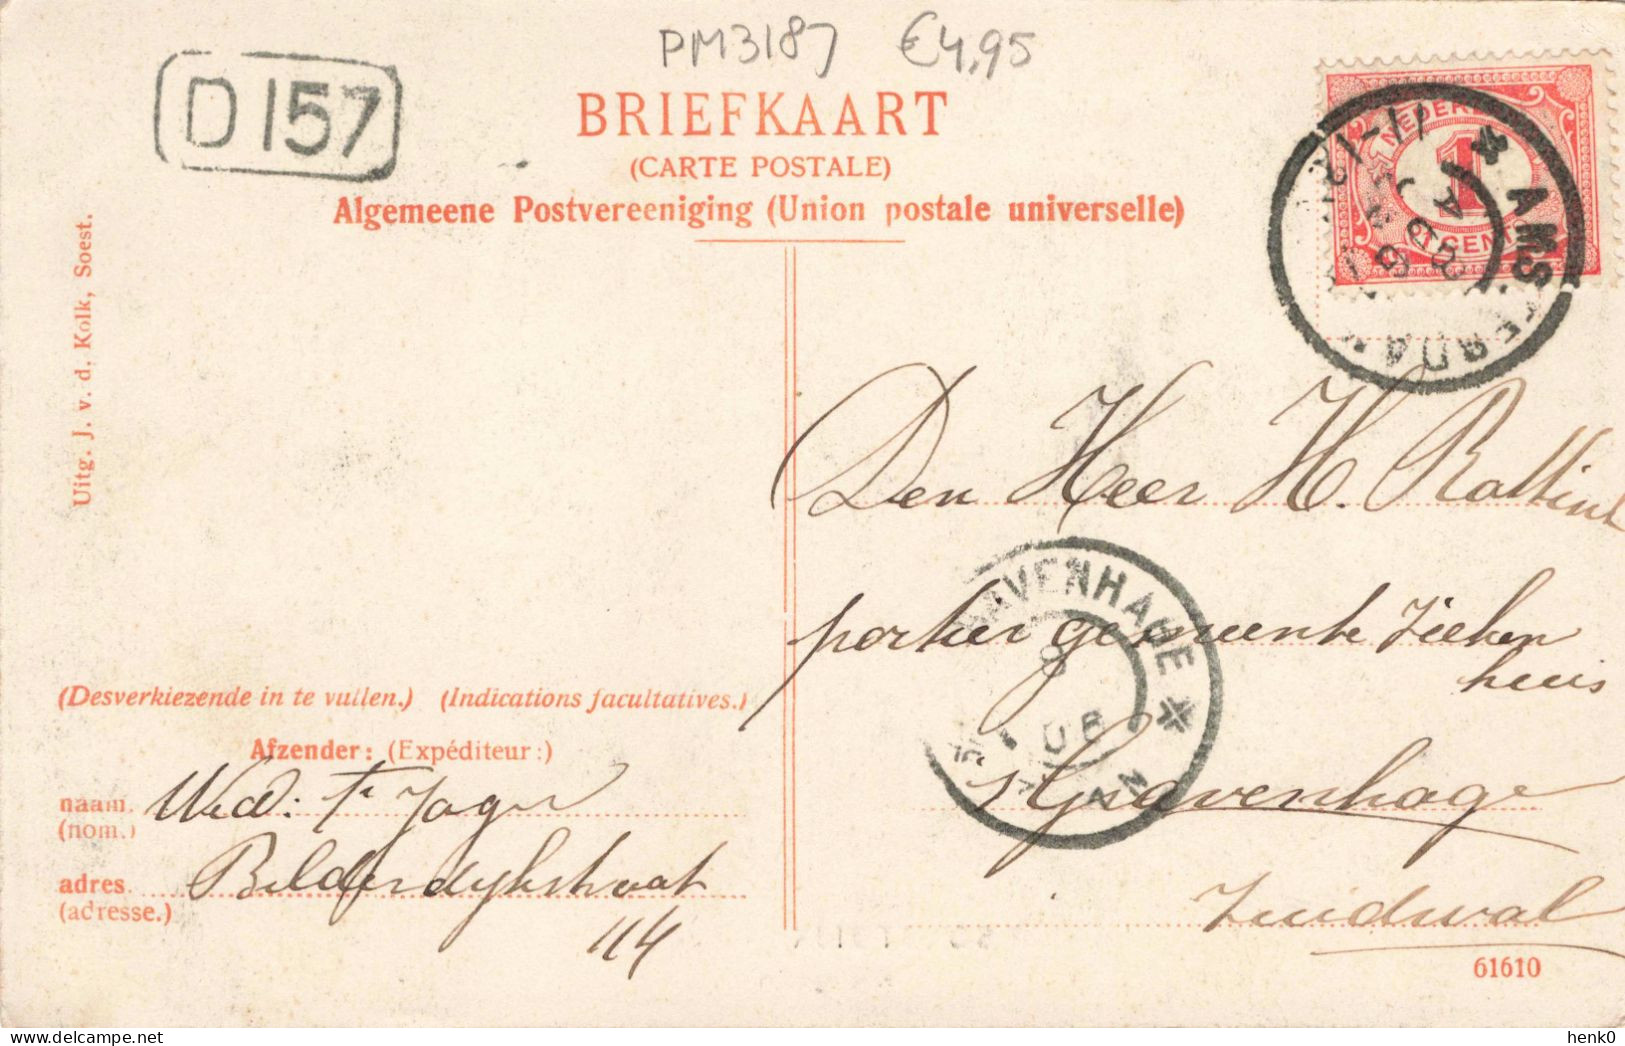 PM3187 €4,95
D 157
BRIEFKAART
(CARTE POSTALE)
Algemeene Postvereeniging (Union postale universelle)
Uitg. J. v. d. Kolk, Soest.
NEDERL
1
CENT
AMSTERDAM
11-12
Den Heer H. Rattink
portier gemeente Zieken
huis
's Gravenhage
Zuidwal
GRAVENHAGE
8
(Desverkiezende in te vullen.) (Indications facultatives.)
Afzender: (Expéditeur:)
naam. Wed: te Jager
(nom.)
adres. Bilderdijkstraat
(adresse.) 114
61610
henk0